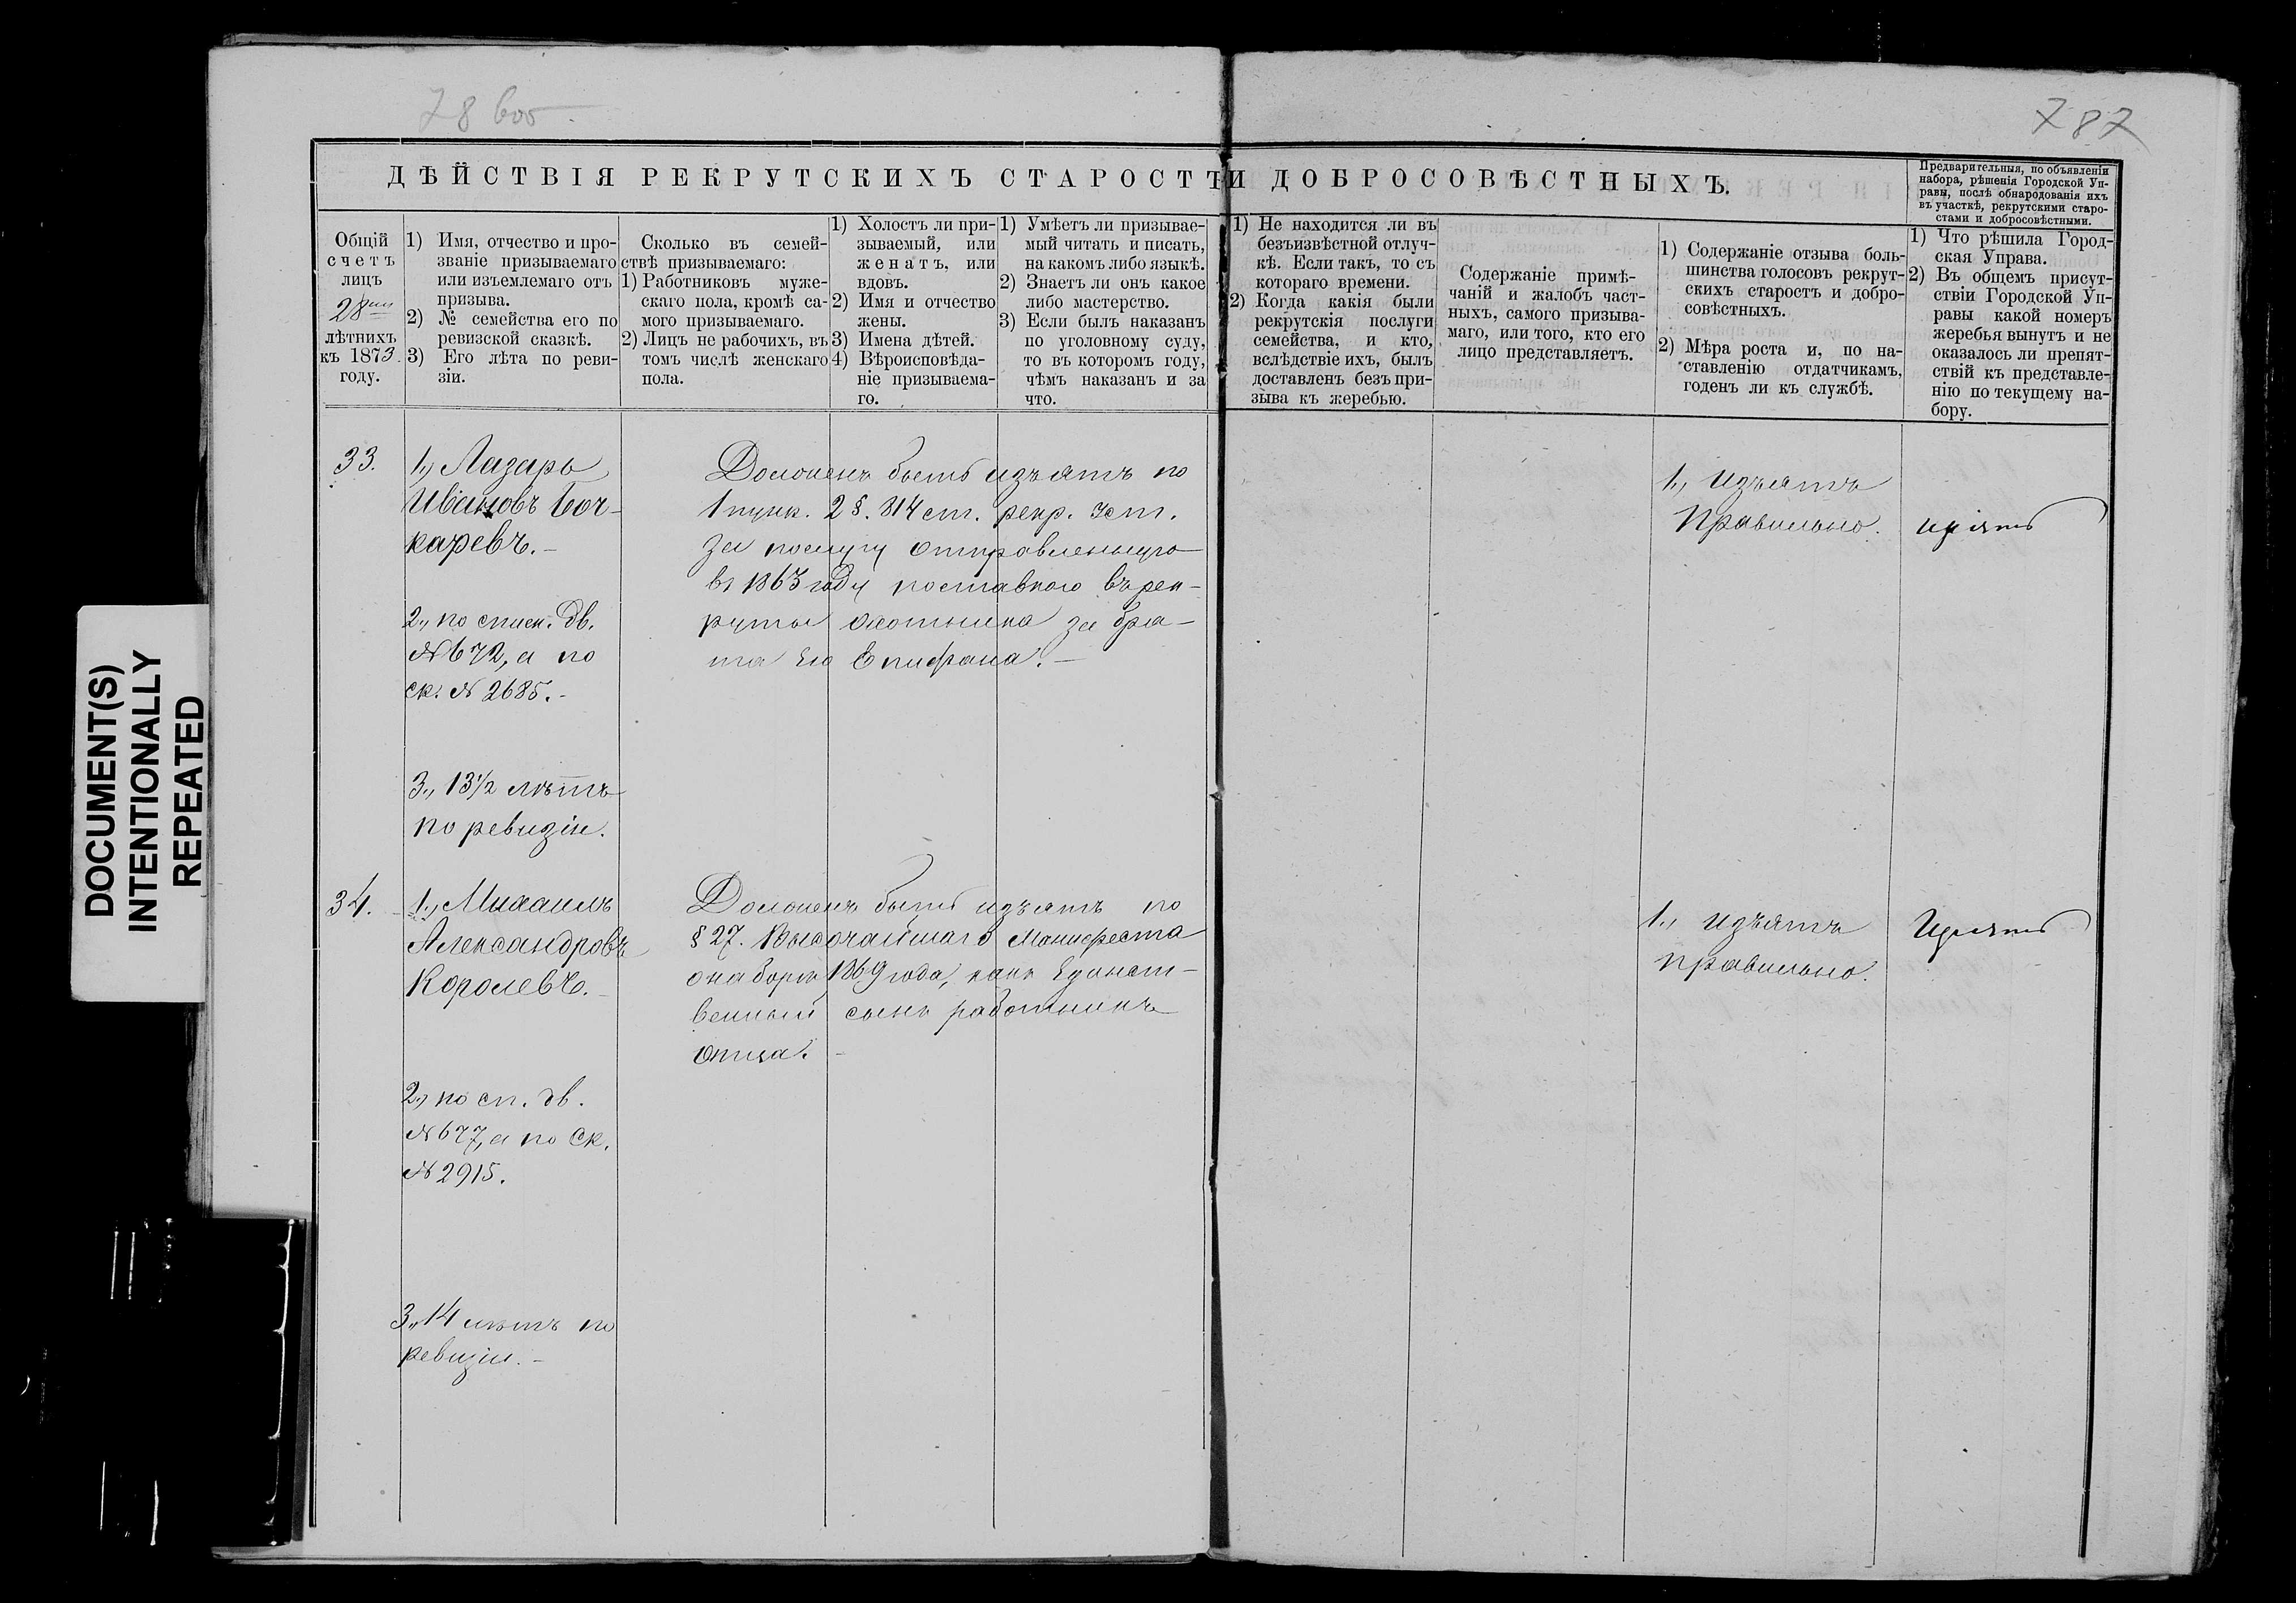 78 воо
7 87
ДѢЙСТВІЯ РЕКРУТСКИХЪ СТАРОСТЪ И ДОБРОСОВѢСТНЫХЪ.
Предварительныя, по объявленіи
набора, рѣшенія Городской Уп-
равы, послѣ обнародованія ихъ
въ участкѣ, рекрутскими старо-
стами и добросовѣстными.
Общій
счетъ
лицъ
28ми
лѣтнихъ
къ 1873.
году.
1) Имя, отчество и про-
званіе призываемаго
или изъемлемаго отъ
призыва.
2) № семейства его по
ревизской сказкѣ.
3) Его лѣта по реви-
зіи.
Сколько въ семей-
ствѣ призываемаго:
1) Работниковъ муже-
скаго пола, кромѣ са-
мого призываемаго.
2) Лицъ не рабочихъ, въ
томъ числѣ женскаго
пола.
1) Холостъ ли при-
зываемый, или
женатъ, или
вдовъ.
2) Имя и отчество
жены.
3) Имена дѣтей.
4) Вѣроисповѣда-
ніе призываема-
го.
1) Умѣетъ ли призывае-
мый читать и писать,
на какомъ либо языкѣ.
2) Знаетъ ли онъ какое
либо мастерство.
3) Если былъ наказанъ
по уголовному суду,
то въ которомъ году,
чѣмъ наказанъ и за
что.
1) Не находится ли въ
безъизвѣстной отлуч-
кѣ. Если такъ, то съ
котораго времени.
2) Когда какія были
рекрутскія послуги
семейства, и кто,
вслѣдствіе ихъ, былъ
доставленъ безъ при-
зыва къ жеребью.
Содержаніе примѣ-
чаній и жалобъ част-
ныхъ, самого призыва-
маго, или того, кто его
лицо представляетъ.
1) Содержаніе отзыва боль-
шинства голосовъ рекрут-
скихъ старостъ и добро-
совѣстныхъ.
2) Мѣра роста и, по на-
ставленію отдатчикамъ,
годенъ ли къ службѣ.
1) Что рѣшила Город-
ская Управа.
2) Въ общемъ присут-
ствіи Городской Уп-
равы какой номеръ
жеребья вынутъ и не
оказалось ли препят-
ствій къ представле-
нію по текущему на-
бору.
33.
1., Лазарь
Ивановъ Боч-
каревъ.-
2., по списк. дв.
№672, а по
ск. № 2685.-
3., 13½ лѣтъ
по ревизіи.
Долженъ быть изъятъ по
1 пунк. 2 §. 814 ст. рекр. уст.
за послугу отправленную
въ 1863 году поставкою въ рек-
руты охотника за бра-
та его Епифана.-
1., Изъятъ
правильно.
34.
1., Михаилъ
Александровъ
Королевъ.-
2., по сп. дв.
№677, а по Ск.
№2915.
3., 14 лѣтъ по
ревизіи.-
Долженъ быть изъятъ по
§ 27. Высочайшаго Манифеста
о наборѣ 1869 года, какъ Единст-
венный сынъ работникъ
отца.-
1., Изъятъ
правильно.
DOCUMENT(S)
INTENTIONALLY
REPEATED